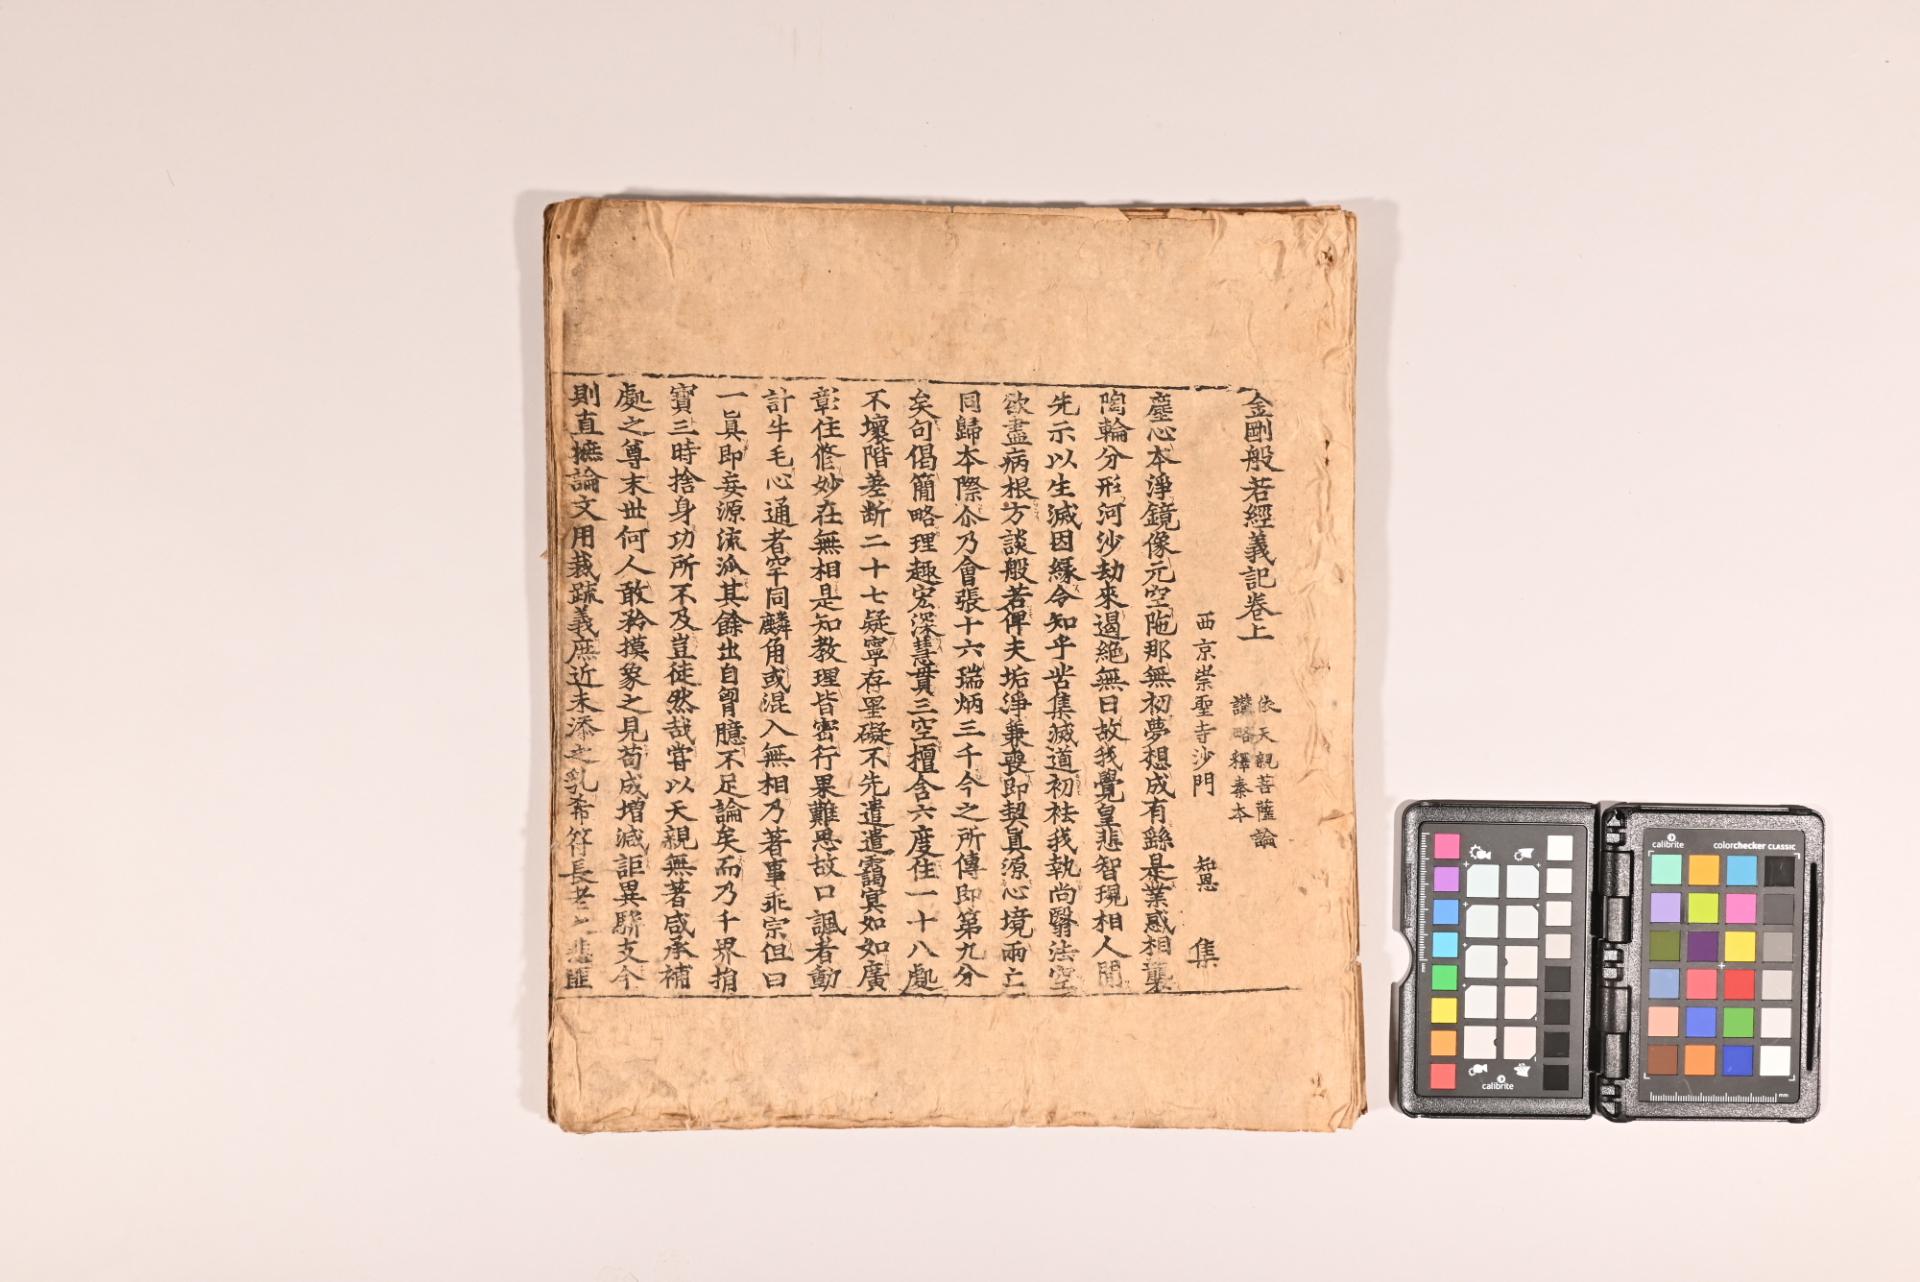 金剛般若經義記卷上
依天親菩薩論
讚略釋秦本
西京崇聖寺沙門 知恩 集
塵心本淨鏡像元空阤那無初夢想成有繇是業惑相襲
陶輪分形河沙劫來遏絕無日故我覺皇悲智現相人間
先示以生滅因緣令知乎苦集滅道初袪我執尚翳法空
欲盡病根方談般若俾夫垢淨兼喪即契真源心境兩亡
同歸本際尒乃會張十六瑞炳三千今之所傳即第九分
矣句偈簡略理趣宏深慧貫三空檀含六度住一十八處
不壞階差断二十七疑寧存罣礙不先遣遣靄冥如如廣
彰住修妙在無相是知教理皆密行果難思故口諷者動
計牛毛心通者罕同麟角或混入無相乃著事乖宗但曰
一真即妄源流派其餘出自胷臆不足論矣而乃千界捐
寶三時捨身功所不及豈徒然哉甞以天親無著咸承補
處之尊末世何人敢矜摸象之見苟成增減詎異騈支今
則直摭論文用裁䟽義庶近未添之乳希符長老之悲匪
calibrite
colorchecker CLASSIC
calibrite
mm